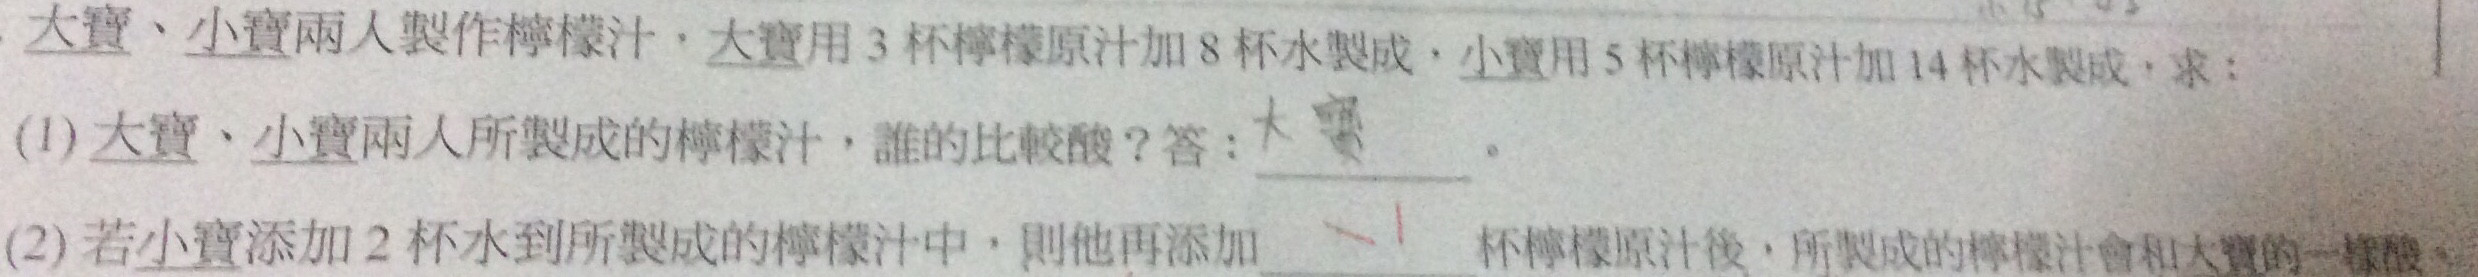 大寶、小寶兩人製作檸檬汁，大寶用 3 杯檸檬原汁加 8 杯水製成，小寶用 5 杯檸檬原汁加 14 杯水製成，求：
(1) 大寶、小寶兩人所製成的檸檬汁，誰的比較酸？答：大寶。
(2) 若小寶添加 2 杯水到所製成的檸檬汁中，則他再添加 1 杯檸檬原汁後，所製成的檸檬汁會和大寶的一樣酸。